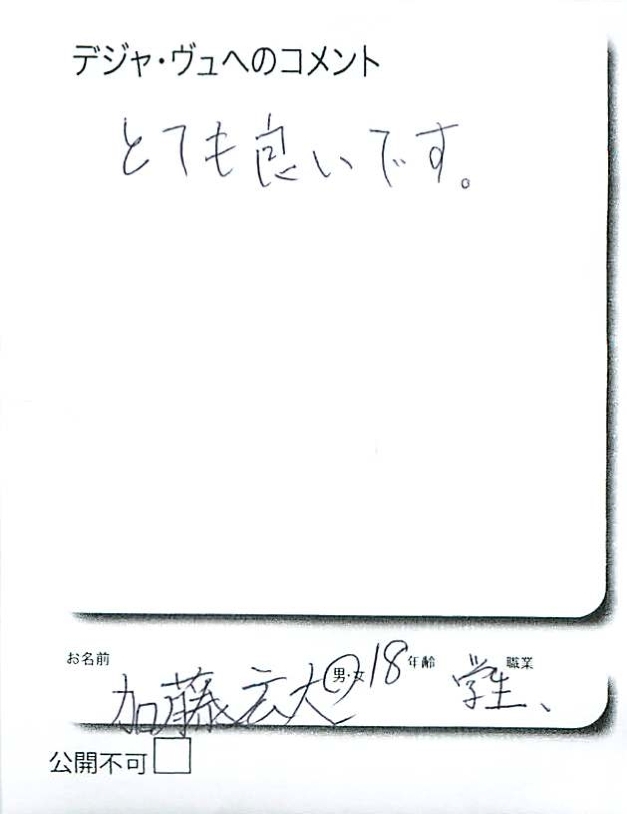 デジャ・ヴュへのコメント
とても良いです。
お名前 加藤宏大 男・女 18 年齢 学生、 職業
公開不可